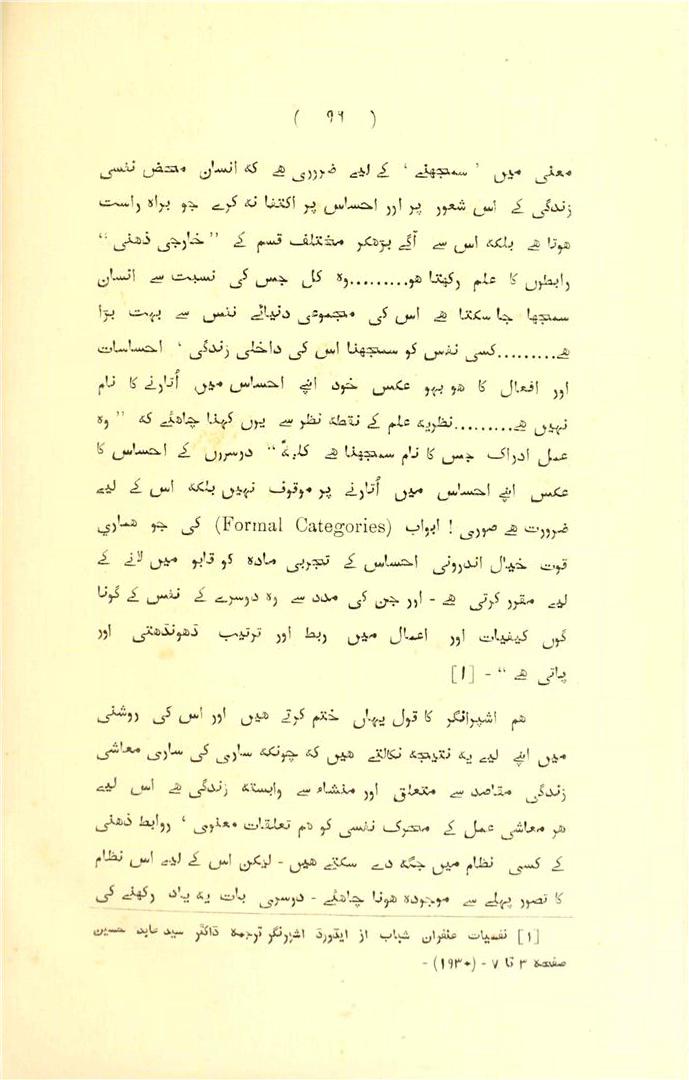 ( ۹۶ )
معنی میں ’ سمجھنے ‘ کے لیے ضروری ھے کہ انسان محض نفسی
زندگی کے اس شعور پر اور احساس پر اکتفا نہ کرے جو براہ راست
ھوتا ھے بلکہ اس سے آگے بڑھکر مختلف قسم کے ’’ خارجی ذھنی ‘‘
رابطوں کا علم رکھتا ھو.........وہ کل جس کی نسبت سے انسان
سمجھا جا سکتا ھے اس کی مجموعی دنیائے نفس سے بہت بڑا
ھے.........کسی نفس کو سمجھنا اس کی داخلی زندگی ‘ احساسات
اور افعال کا ھو بہو عکس خود اپنے احساس میں اُتارنے کا نام
نہیں ھے.........نظریہ علم کے نقطہ نظر سے یوں کہنا چاھئے کہ ’’ وہ
عمل ادراک جس کا نام سمجھنا ھے کلیۃً ‘‘ دوسروں کے احساس کا
عکس اپنے احساس میں اُتارنے پر موقوف نہیں بلکہ اس کے لیے
ضرورت ھے صوری ! ابواب (Formal Categories) کی جو ھماری
قوت خیال اندرونی احساس کے تجربی مادہ کو قابو میں لانے کے
لیے مقرر کرتی ھے - اور جن کی مدد سے وہ دوسرے کے نفس کے گونا
گوں کیفیات اور اعمال میں ربط اور ترتیب ڈھونڈھتی اور
پاتی ھے ‘‘ - [۱]
ھم اشپرانگر کا قول یہاں ختم کرتے ھیں اور اس کی روشنی
میں اپنے لیے یہ نتیجہ نکالتے ھیں کہ چونکہ ساری کی ساری معاشی
زندگی مقاصد سے متعلق اور منشاء سے وابستہ زندگی ھے اس لیے
ھر معاشی عمل کے محرک نفسی کو ھم تعلقات معنوی ‘ روابط ذھنی
کے کسی نظام میں جگہ دے سکتے ھیں - لیکن اس کے لیے اس نظام
کا تصور پہلے سے موجودہ ھونا چاھئے - دوسری بات یہ یاد رکھنے کی
[۱] نفسیات عنفوان شباب از ایڈورڈ اشپرنگر ترجمہ ڈاکٹر سید عابد حسین
صفحہ ۳ تا ۷ - (۱۹۳۰) -